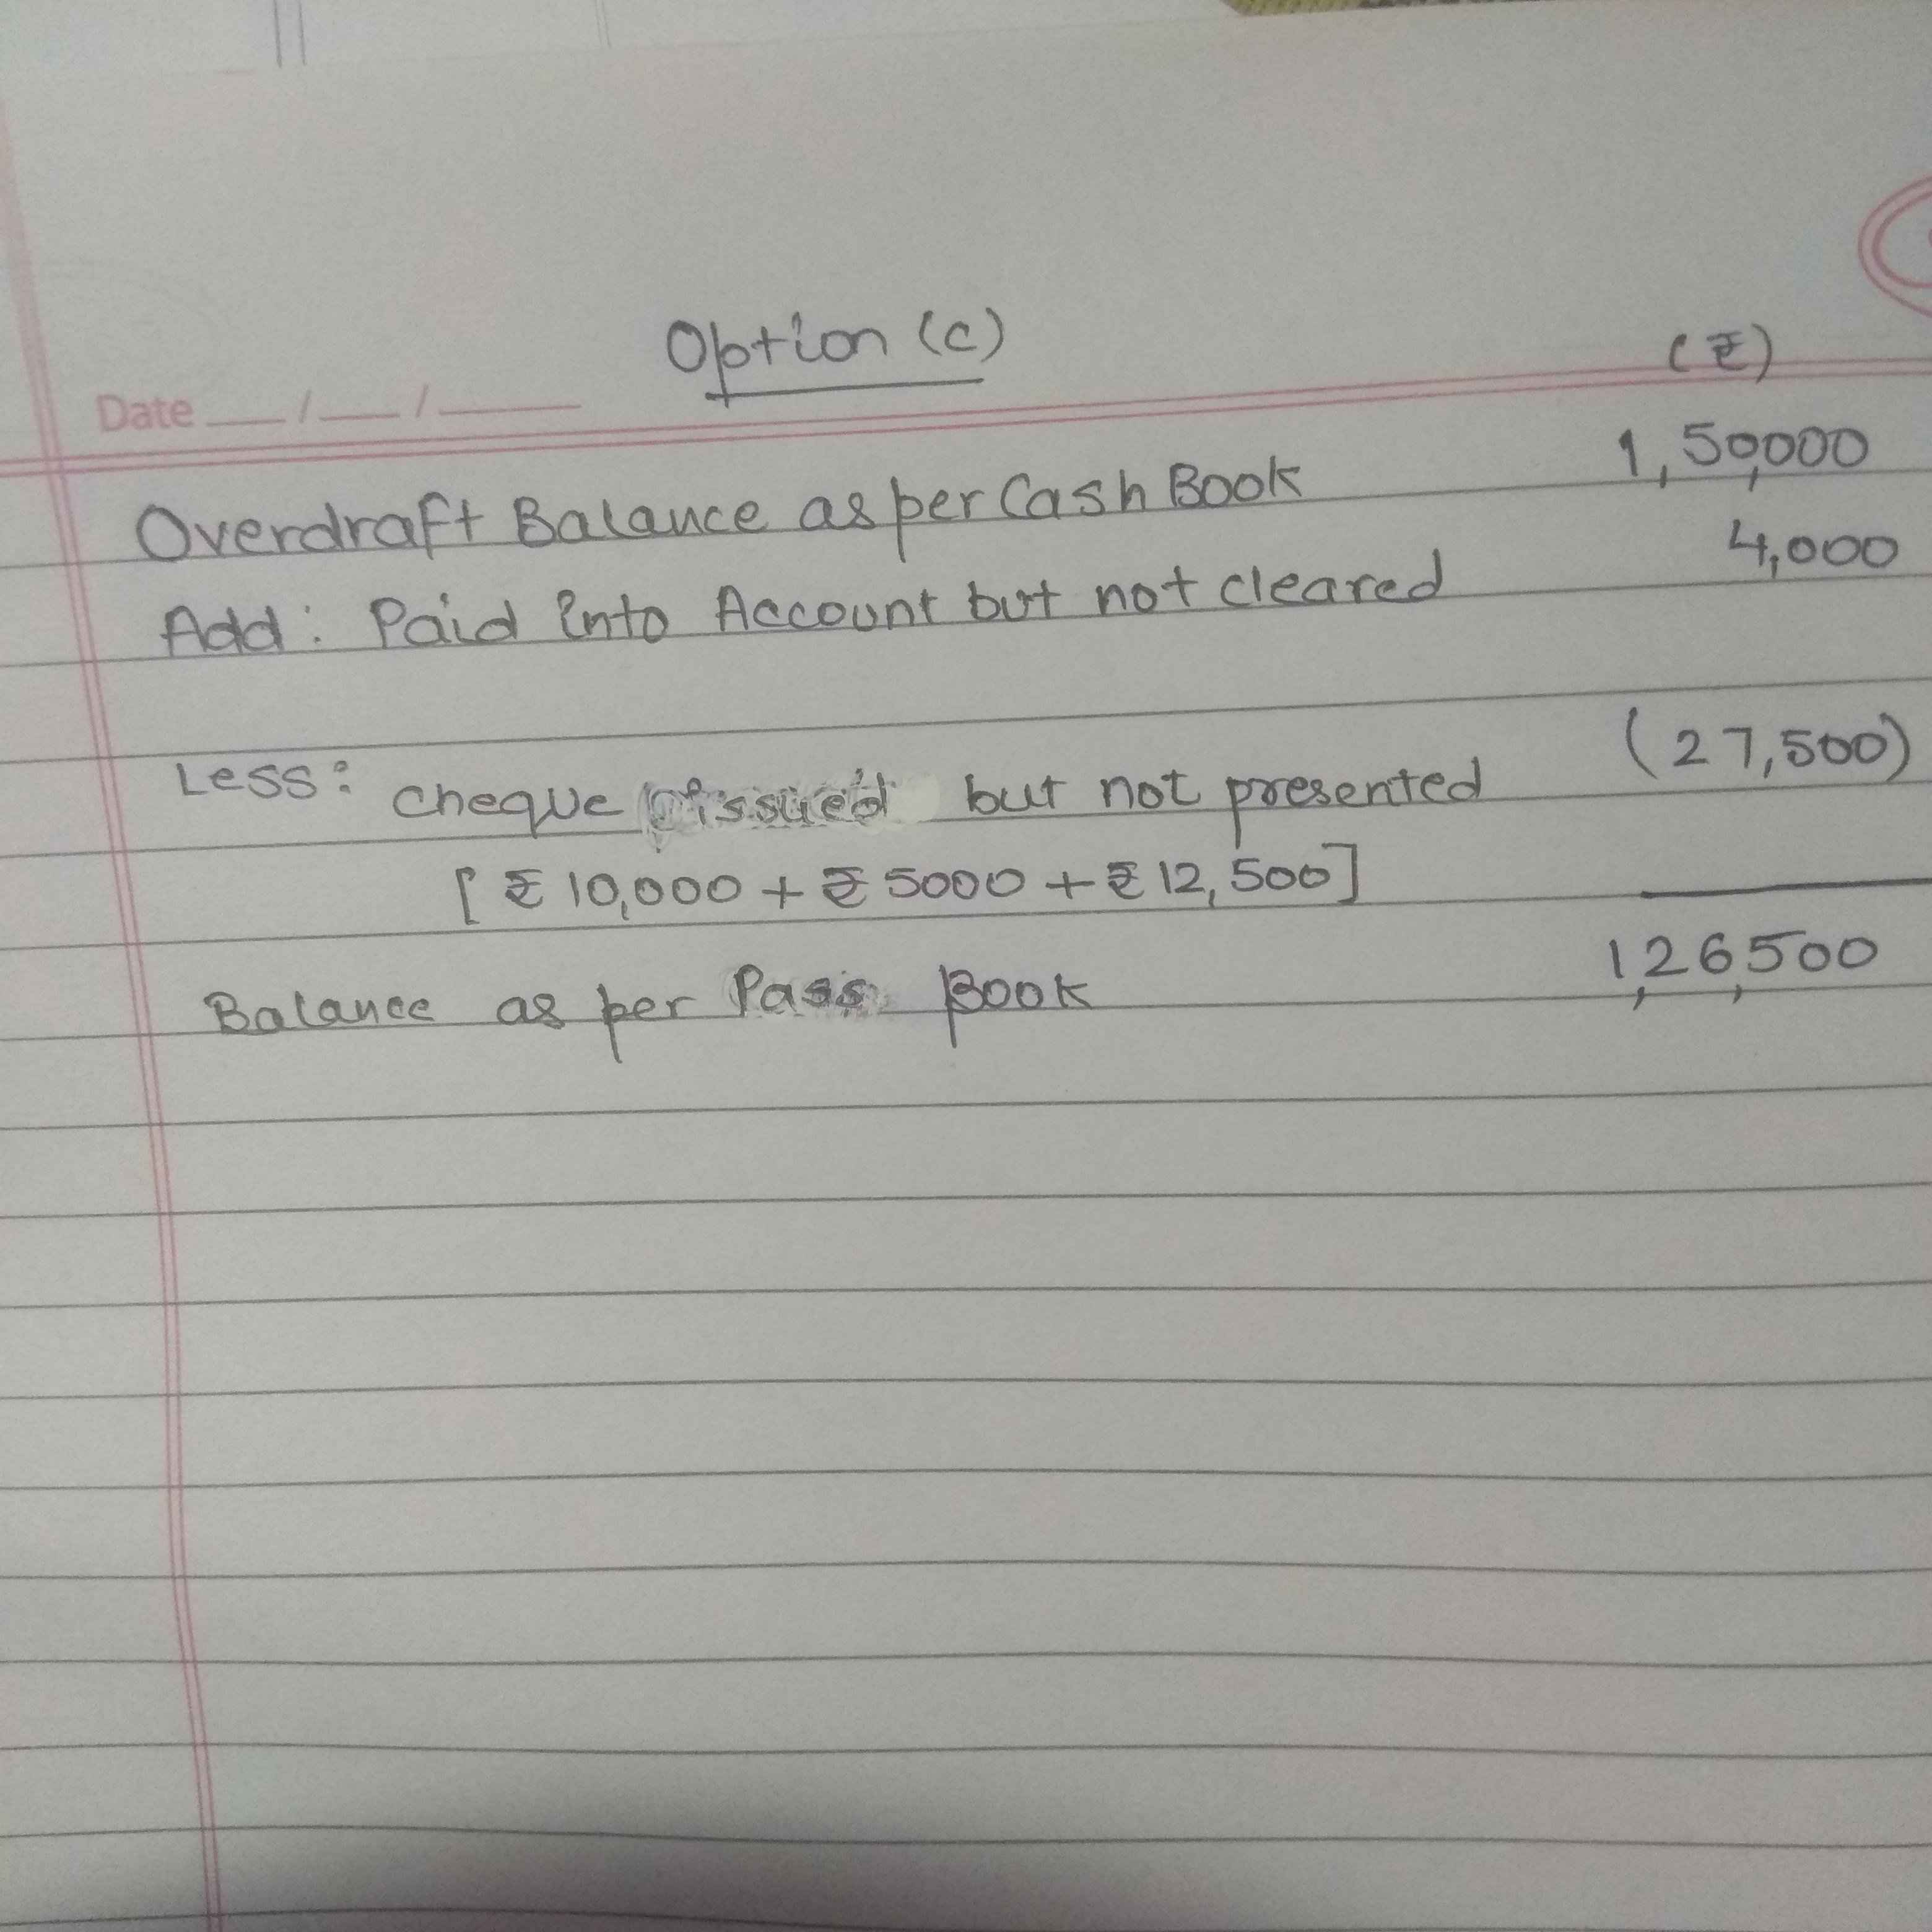 Option (c)
(₹)
Date __/__/____
Overdraft Balance as per Cash Book 1,50,000
Add: Paid into Account but not cleared 4,000
Less: cheque issued but not presented (27,500)
[₹ 10,000 + ₹ 5000 + ₹ 12,500]
Balance as per Pass Book 1,26,500